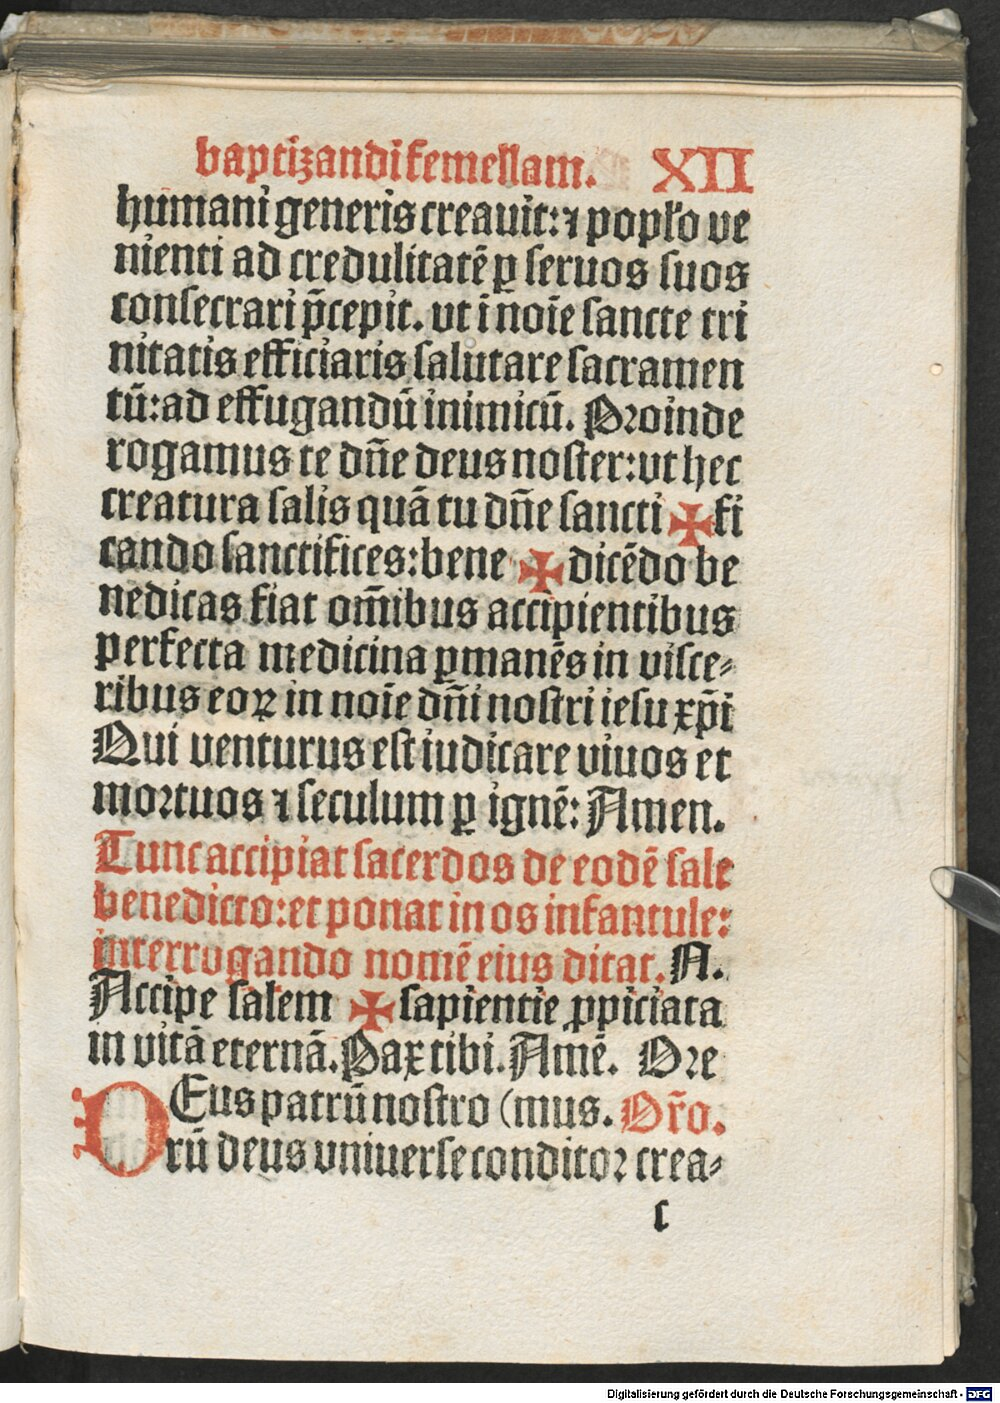 baptizandi femellam. XII
humani generis creauit: ⁊ popl'o ve
nienti ad credulitatē ꝑ seruos suos
consecrari p̄cepit. vt ī noīe sancte tri
nitatis efficiaris salutare sacramen
tū: ad effugandū inimicū. Proinde
rogamus te dn̄e deus noster: vt hec
creatura salis quā tu dn̄e sancti ✠ fi
cando sanctifices: bene ✠ dicēdo be
nedicas fiat om̄ibus accipientibus
perfecta medicina ꝑmanēs in visce⸗
ribus eoꝝ in noīe dn̄i nostri iesu xp̄i
Qui venturus est iudicare viuos et
mortuos ⁊ seculum ꝑ ignē: Amen.
Tunc accipiat sacerdos de eodē sale
benedicto: et ponat in os infantule:
interrogando nomē eius dicat. N.
Accipe salem ✠ sapientie ꝓpiciata
in vitā eternā. Pax tibi. Amē. Ore
DEus patrū nostro (mus. Or̄o.
rū deus vniuerse conditor crea⸗
c
Digitalisierung gefördert durch die Deutsche Forschungsgemeinschaft - DFG